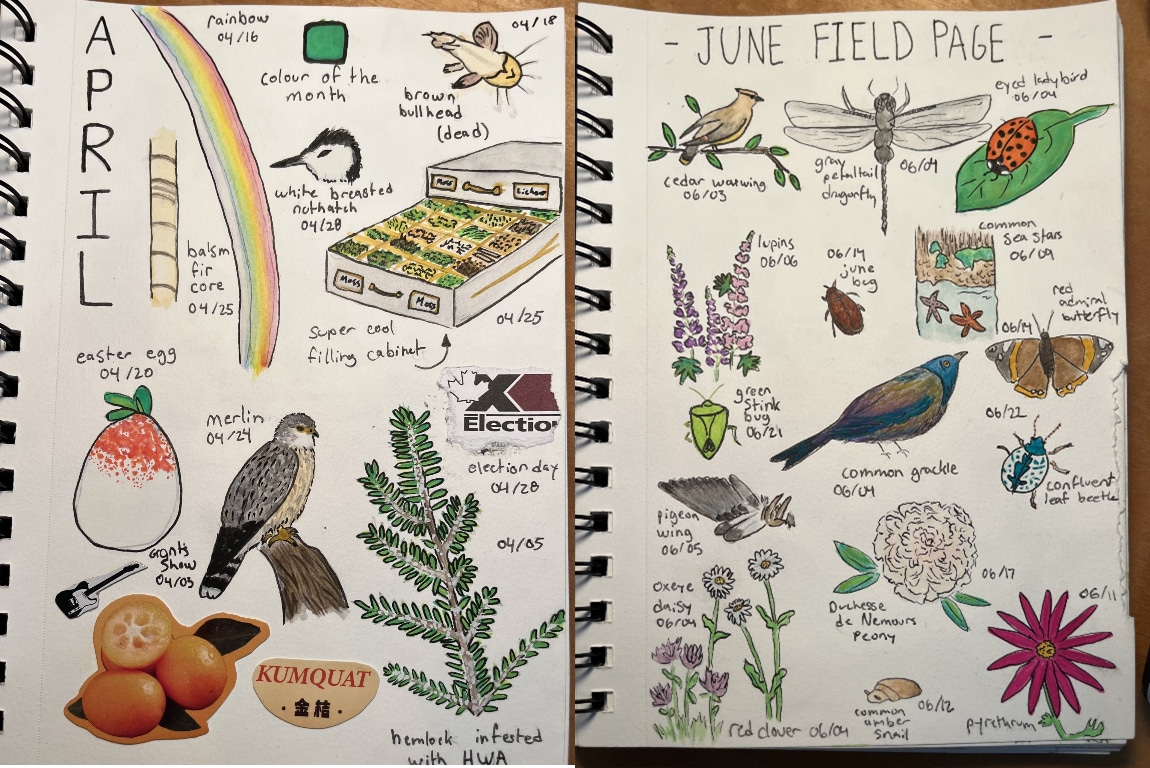 APRIL
rainbow
04/16
colour of the
month
04/18
brown
bullhead
(dead)
white breasted
nuthatch
04/28
Moss
Lichens
Moss
Moss
balsm
fir
core
04/25
04/25
super cool
filling cabinet
easter egg
04/20
merlin
04/24
X
Electio
election day
04/28
Grant's
Show
04/03
04/05
KUMQUAT
· 金桔 ·
hemlock infested
with HWA
- JUNE FIELD PAGE -
cedar waxwing
06/03
gray
petaltail
dragonfly
06/04
eyed ladybird
06/04
lupins
06/06
06/14
june
bug
common
Sea stars
06/09
red
admiral
butterfly
06/14
green
stink
bug
06/21
common grackle
06/04
06/22
confluent
leaf beetle
pigeon
wing
06/05
oxeye
daisy
06/04
Duchesse
de Nemours
Peony
06/17
06/11
pyrethrum
common
amber
snail
06/12
red clover 06/04